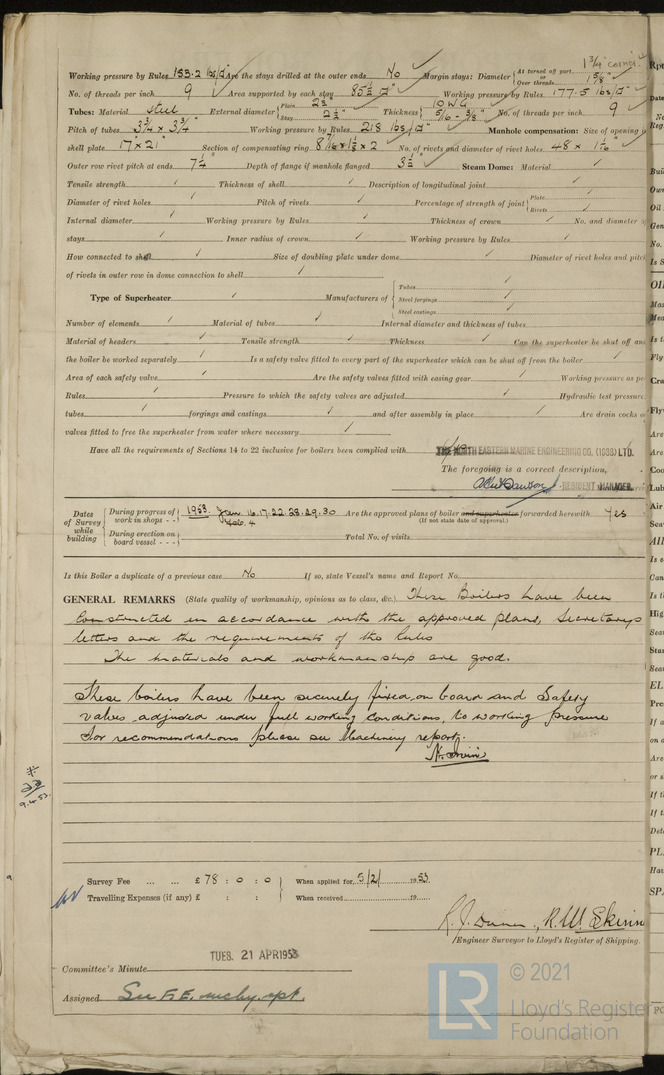 1 3/4" corner.
Working pressure by Rules 153.2 lbs/□" Are the stays drilled at the outer ends No Margin stays: Diameter { At turned off part or Over threads 1 5/8"
No. of threads per inch 9 Area supported by each stay 85 1/2 □" Working pressure by Rules 177.5 lbs/□"
Tubes: Material Steel External diameter { Plain Stay 2 1/2" 2 1/2" Thickness { 10 WG 5/16 - 3/8" No. of threads per inch 9
Pitch of tubes 3 3/4 × 3 3/4" Working pressure by Rules 218 lbs/□" Manhole compensation: Size of opening
shell plate 17" × 21" Section of compensating ring 8 7/16 × 1 1/2 × 2 No. of rivets and diameter of rivet holes 48 × 1 1/16"
Outer row rivet pitch at ends 7 1/4" Depth of flange if manhole flanged 3 1/2" Steam Dome: Material
Tensile strength Thickness of shell Description of longitudinal joint
Diameter of rivet holes Pitch of rivets Percentage of strength of joint { Plate Rivets
Internal diameter Working pressure by Rules Thickness of crown No. and diameter
stays Inner radius of crown Working pressure by Rules
How connected to shell Size of doubling plate under dome Diameter of rivet holes and pitch
of rivets in outer row in dome connection to shell
Type of Superheater Manufacturers of { Tubes Steel forgings Steel castings
Number of elements Material of tubes Internal diameter and thickness of tubes
Material of headers Tensile strength Thickness Can the superheater be shut off and
the boiler be worked separately Is a safety valve fitted to every part of the superheater which can be shut off from the boiler
Area of each safety valve Are the safety valves fitted with easing gear Working pressure as pe
Rules Pressure to which the safety valves are adjusted Hydraulic test pressure
tubes forgings and castings and after assembly in place Are drain cocks o
valves fitted to free the superheater from water where necessary
Have all the requirements of Sections 14 to 22 inclusive for boilers been complied with
THE NORTH EASTERN MARINE ENGINEERING CO. (1938) LTD.
The foregoing is a correct description,
RESIDENT MANAGER.
Dates of Survey while building { During progress of work in shops - - 1953 Jan 16.17.22.28.29.30 Feb. 4 Are the approved plans of boiler and superheater forwarded herewith Yes
(If not state date of approval.)
During erection on board vessel - - - Total No. of visits
Is this Boiler a duplicate of a previous case No If so, state Vessel's name and Report No.
GENERAL REMARKS (State quality of workmanship, opinions as to class, &c.) These Boilers have been
constructed in accordance with the approved plans, Secretarys
letters and the requirements of the Rules
The materials and workmanship are good.
These boilers have been securely fixed on board and Safety
valves adjusted under full working conditions, to working pressure
For recommendations please see Machinery report.
9.4.53.
Survey Fee ... ... £78 : 0 : 0 } When applied for 5/2/ 1953
Travelling Expenses (if any) £ : : } When received 19
R. W. Skinn
Engineer Surveyor to Lloyd's Register of Shipping.
TUES. 21 APR 1953
Committee's Minute
Assigned See F.E. mchy. rpt.
LR © 2021
Lloyd's Register
Foundation